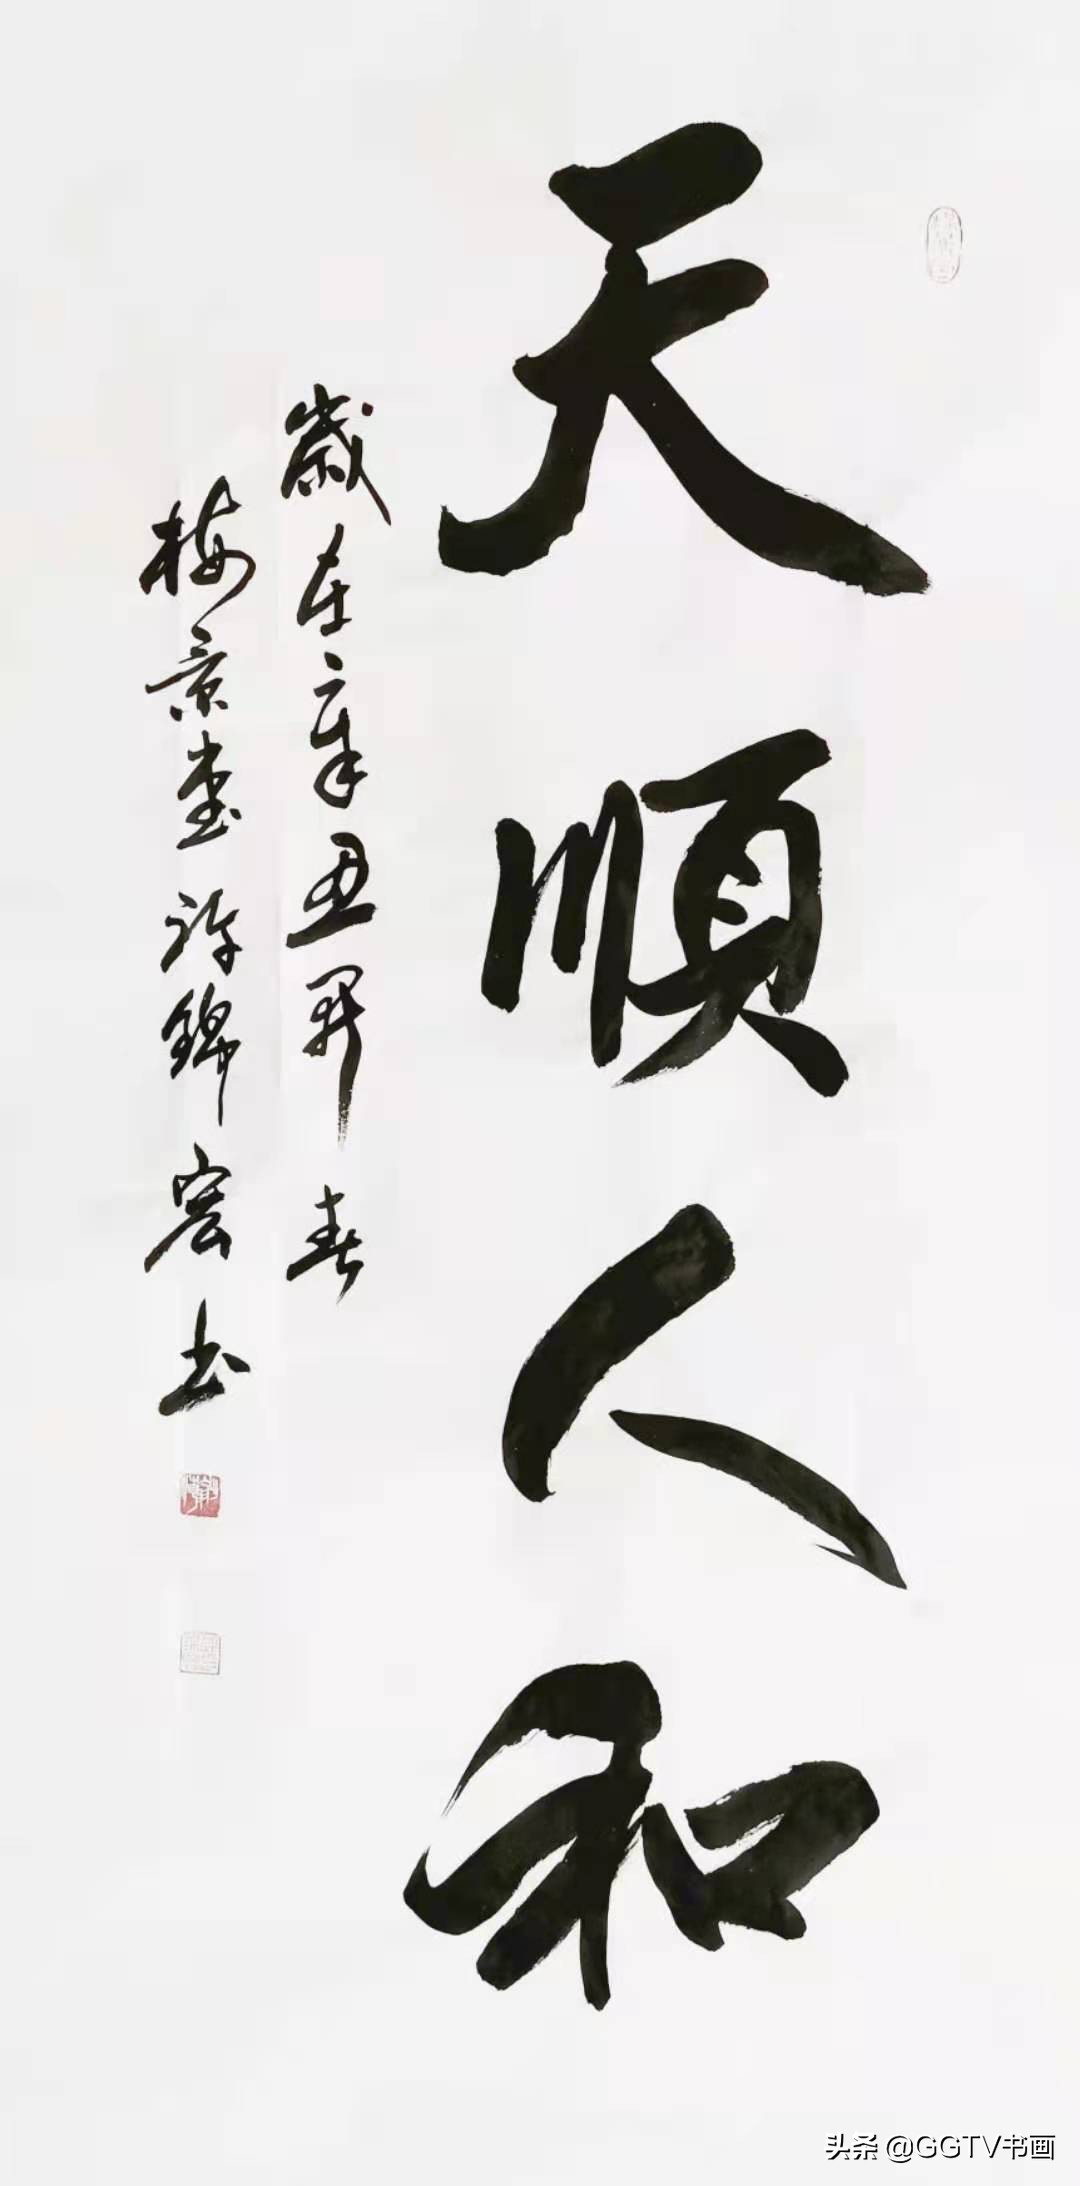 天順人和
歲在辛丑開春
梅景堂許錦宏書
头条 @GGTV书画